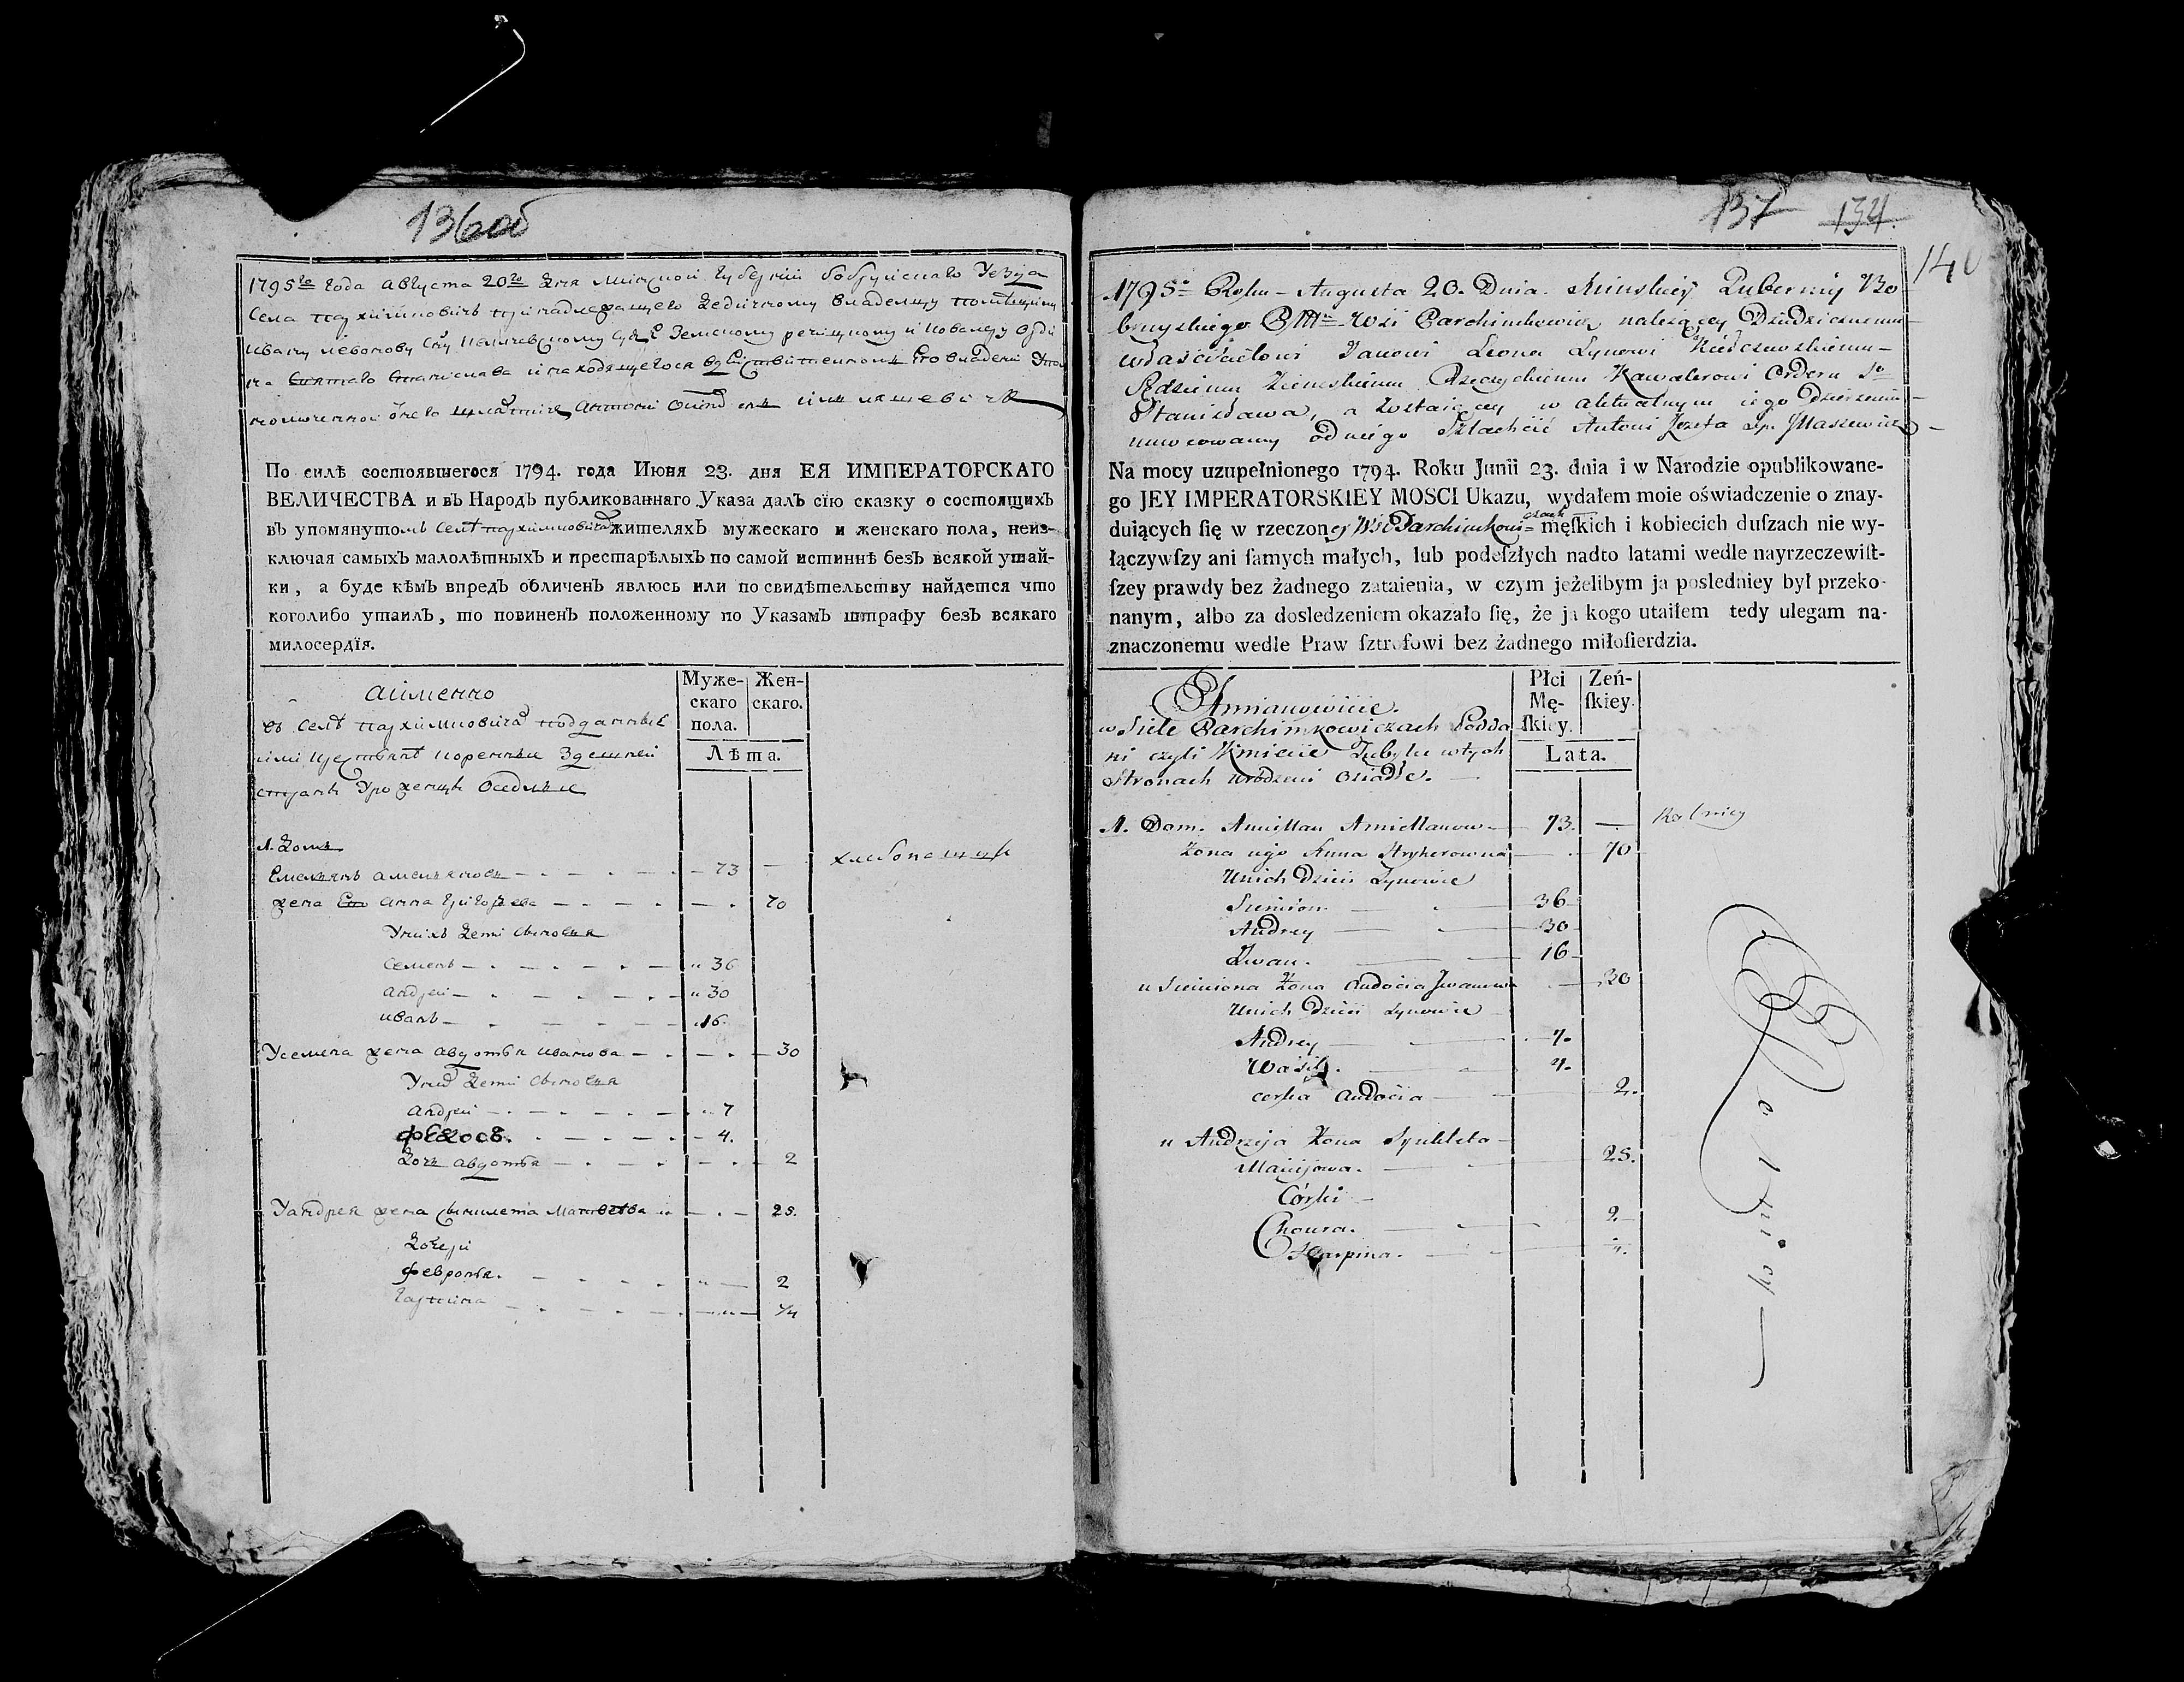 136об
1795го года августа 20го дня Минской губернии бобруйскаго Уезда
Села пархимковичъ принадлежащего Дедичному владельцу помещику
ивану леонову Сну Земскому речицкому и кавалеру орде
на Святаго Станислава и находящегося въ его владении
антони
По силѣ состоявшегося 1794. года Июня 23. дня ЕЯ ИМПЕРАТОРСКАГО
ВЕЛИЧЕСТВА и въ НародЪ публикованнаго Указа далъ сїю сказку о состоящихъ
въ упомянутомъ селѣ пархимковичахъ жителяхЪ мужескаго и женскаго пола, неиз-
ключая самыхЪ малолѣтныхЪ и престарѣлыхЪ по самой истиннѣ безЪ всякой утай-
ки, а буде кѣмЪ впредЪ обличенЪ явлюсь или по свидѣтельству найдется что
коголибо утаилЪ, то повиненЪ положенному по УказамЪ штрафу безЪ всякаго
милосердїя.
Муже-
скаго
пола.
Жен-
скаго.
Лѣта.
аименно
въ Селѣ пархимковичахъ подданныя
или крестьянѣ коренныя Здешней
страны Уроженцы Оседлыя
1. Домъ
Емельянъ амельяновъ 73 хлебопашцы
жена Его анна григорьева 70
Унихъ Дети сыновья
семенъ 36
андрей 30
иванъ 16
Усемена жена авдотья иванова 30
Унихъ Дети сыновья
андрей 7
4.
Дочь авдотья 2
Уандрея жена матвеева 25.
Дочери
февронья. 2
гарпина 1/4
137 134.
140
1795o Roku Augusta 20. Dnia. Minskiey Guberniy Bo
bruyskiego Pttu Wsi Parchimkowicz należącey Dziedzicznemu
właścicielowi Janowi Leona Synowi Kieszczewskiemu
Sędziemu Ziemskiemu Rzeczyckiemu Kawalerowi Orderu So
Stanisława, a zostaiącey w aktualnym iego Dzierzeniu
umocowany od niego Szlachcic Antoni Jozefa Syn
Na mocy uzupełnionego 1794. Roku Junii 23. dnia i w Narodzie opublikowane-
go JEY IMPERATORSKIEY MOSCI Ukazu, wydałem moie oświadczenie o znay-
duiących ſię w rzeczoney Wsi Parchimkowi= czach męſkich i kobiecich duſzach nie wy-
łączywſzy ani ſamych małych, lub podeſzłych nadto latami wedle nayrzeczewiſt-
ſzey prawdy bez żadnego zataienia, w czym jeżelibym ja posledniey był przeko-
nanym, albo za dosledzeniem okazało ſię, że ja kogo utaiłem tedy ulegam na-
znaczonemu wedle Praw ſztrofowi bez żadnego miłoſierdzia.
Płci
Mę-
ſkiey.
Zeń-
ſkiey.
Lata.
Amianowicie.
w Siele Parchimkowiczach Podda
ni czyli Kmiecie Tubylu w tych
Stronach Urodzeni Osiadłe.
1. Dom. Amillan Amillanow 73. Rolnicy
żona iego Anna Hryherowna 70
Unich Dzieci Synowie
Siemion 36
Andrey 30
Jwan. 16
u Siemiona Żona Audocia Jwanowa 30
Unich Dzieci Synowie
Andrey 7.
Wasil. 4.
corka Audocia 2.
u Andrzeja Żona Synkleta
Maciejowa. 25.
Córki
Choura. 2.
Harpina. 1/4.
Rolnicy